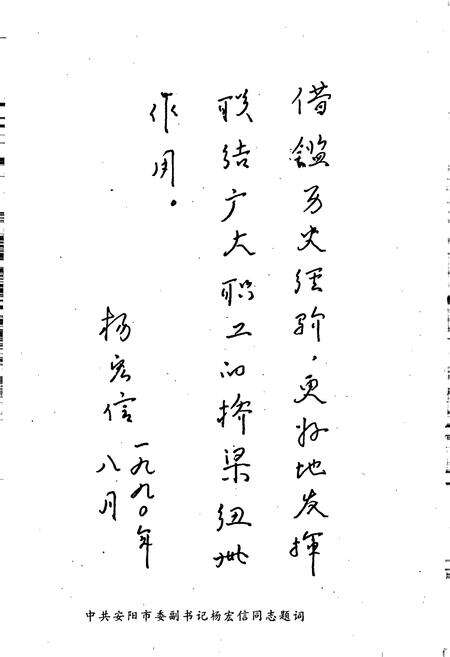 借鑑历史经验，更好地发挥
联结广大职工的桥梁纽带
作用。
杨宏信
一九九〇年
八月
中共安阳市委副书记杨宏信同志题词